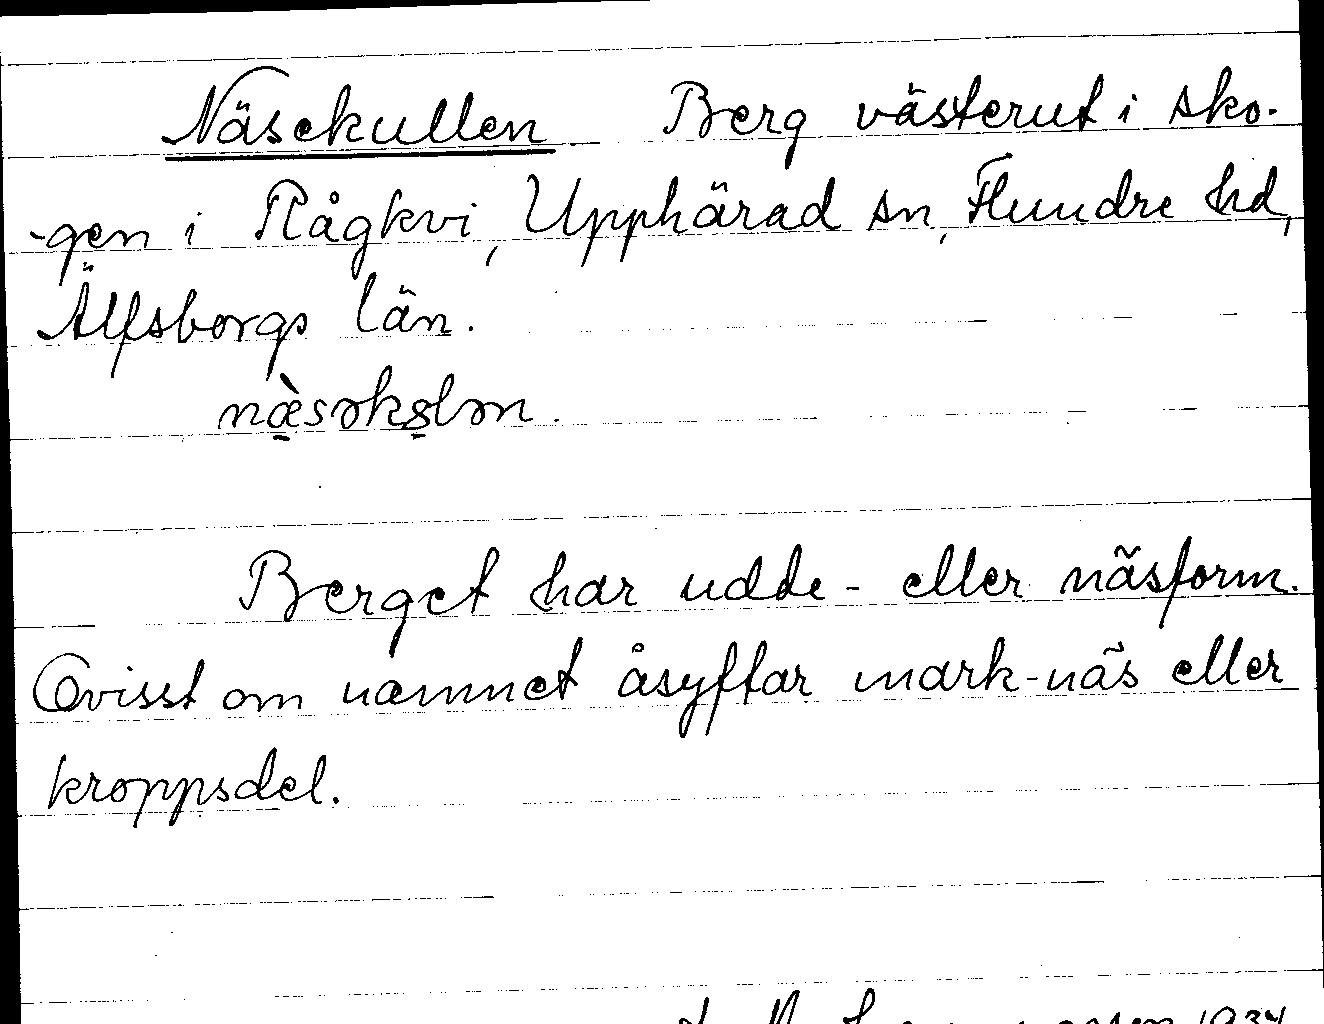 Näsekullen Berg västerut i sko-
-gen i Rågkvi, Upphärad sn, Flundre hd,
Älfsborgs län.
næ̀səkɷlən.
Berget har udde- eller näsform.
Ovisst om namnet åsyftar mark-näs eller
kroppsdel.
1934